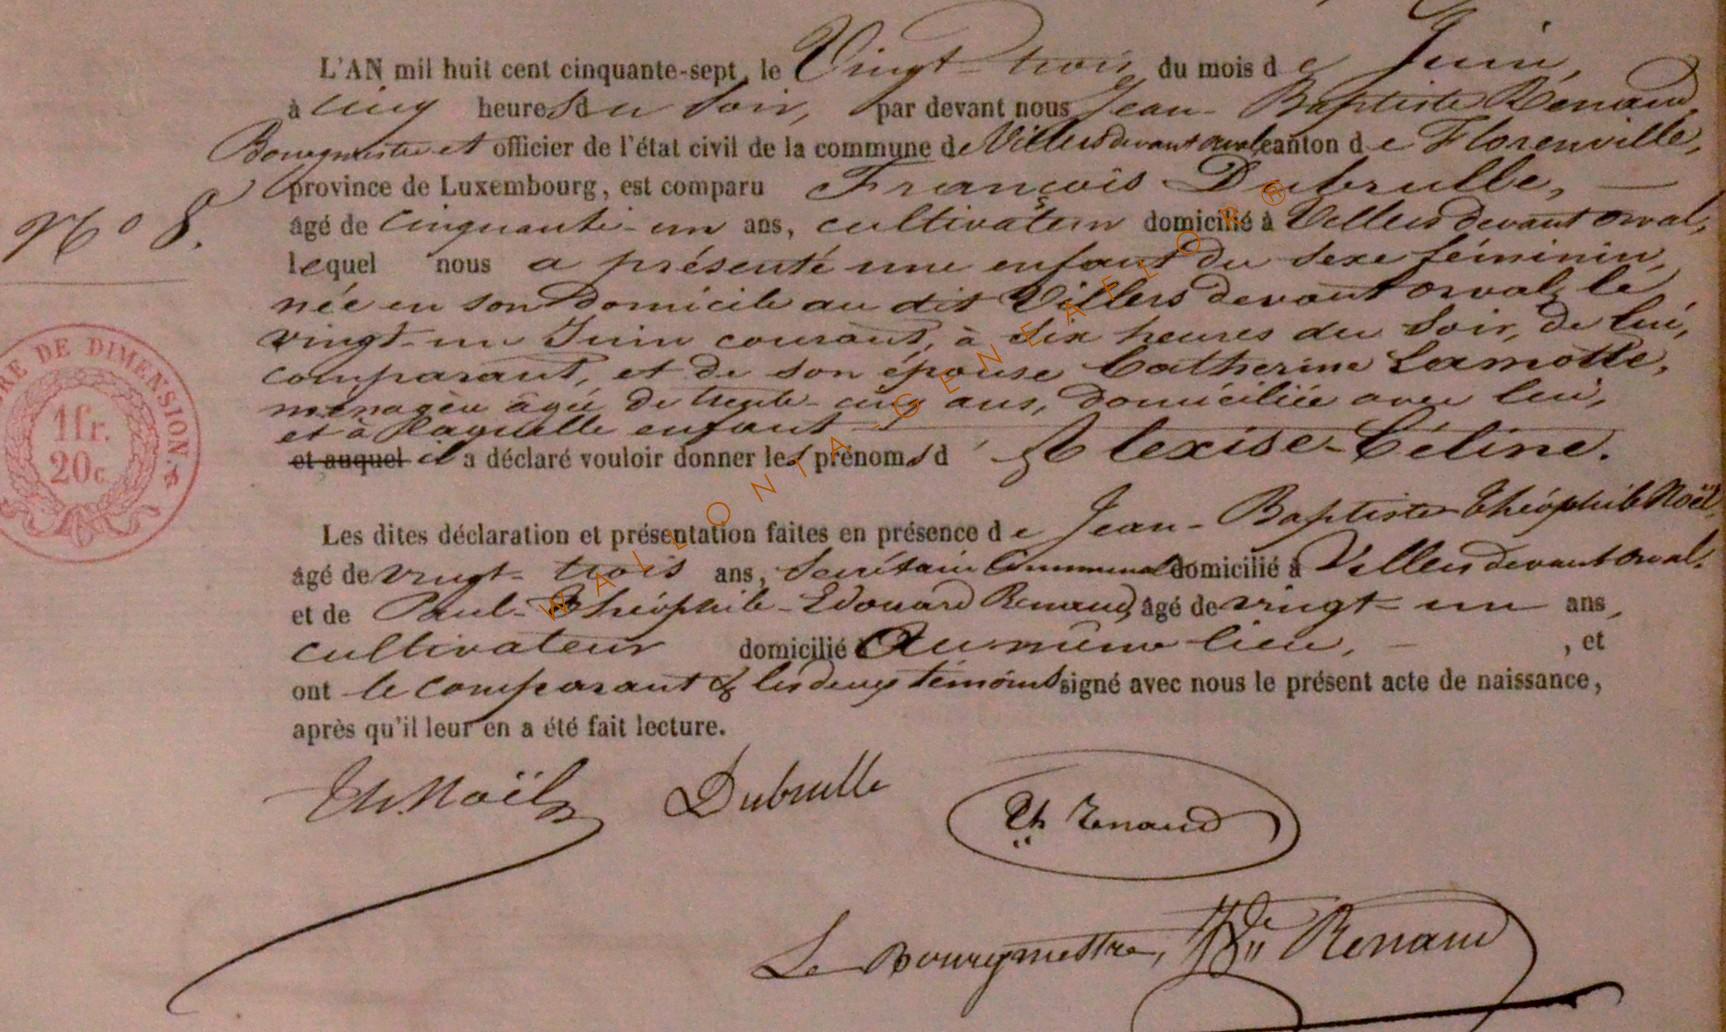 L'AN mil huit cent cinquante-sept, le Vingt-trois du mois de Juin,
à cinq heures du soir, par devant nous Jean-Baptiste Renaud,
Bourgmestre et officier de l'état civil de la commune de Villers devant orval canton de Florenville,
province de Luxembourg, est comparu François Dubrulle,
âgé de cinquante-un ans, cultivateur domicilié à Villers devant orval,
N° 8.
lequel nous a présenté une enfant du sexe féminin,
née en son domicile au dit Villers devant orval, le
vingt-un Juin courant, à six heures du soir, de lui,
comparant, et de son épouse Catherine Lamotte,
ménagère âgée de trente-cinq ans, domiciliée avec lui,
et à laquelle enfant
et auquel il a déclaré vouloir donner les prénoms d'Alexise-Céline.
TIMBRE DE DIMENSION.
1fr.
20c.
Les dites déclaration et présentation faites en présence de Jean-Baptiste-Théophile Noël,
âgé de vingt-trois ans, Secrétaire Communal domicilié à Villers devant orval,
et de Paul-Théophile-Edouard Renaud, âgé de vingt-un ans,
cultivateur domicilié Au même lieu, , et
ont le comparant & les deux témoins signé avec nous le présent acte de naissance,
après qu'il leur en a été fait lecture.
Th. Noël Dubrulle Th Renaud
Le Bourgmestre, Renaud
WALLONIA-GENEAFLOR®